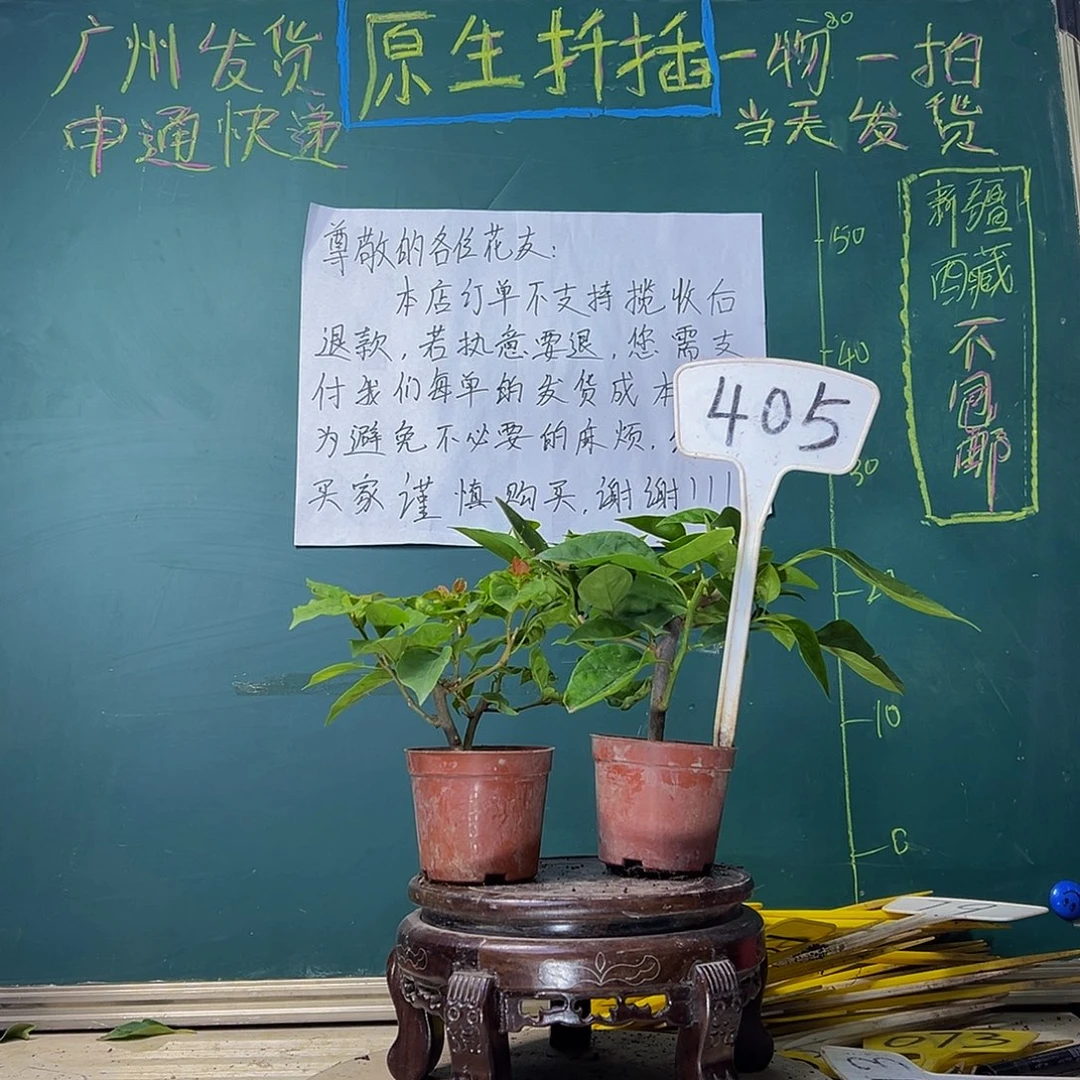 广州发货
申通快递
原生扦插
一物一拍
当天发货
80
尊敬的各位花友:
本店订单不支持揽收后
退款,若执意要退,您需支
付我们每单的发货成本
为避免不必要的麻烦.
买家谨慎购买,谢谢!!!
405
50
40
30
10
0
新疆
西藏
不包邮
013